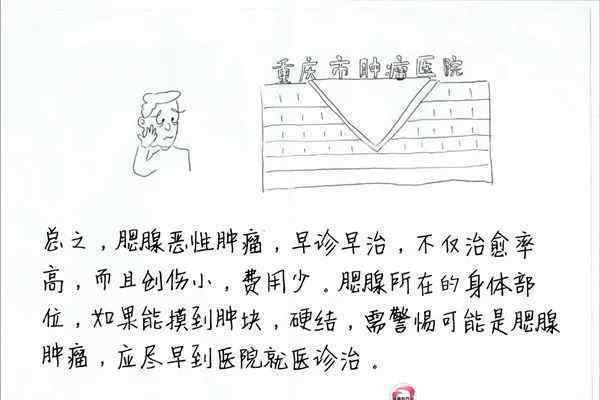 重庆市肿瘤医院
总之，腮腺恶性肿瘤，早诊早治，不仅治愈率
高，而且创伤小，费用少。腮腺所在的身体部
位，如果能摸到肿块，硬结，需警惕可能是腮腺
肿瘤，应尽早到医院就医诊治。